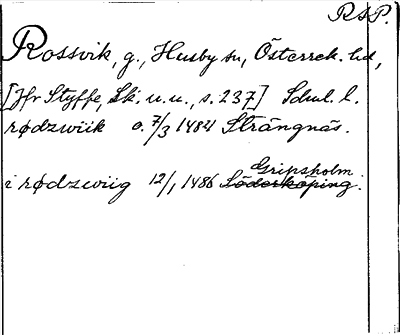 RSP.
Rossvik, g., Husby sn, Österrek. hd,
[Jfr Styffe, Sk. u. u., s. 237] Schul. l.
rødzwiik o. 7/3 1484 Strängnäs.
Gripsholm
i rødzwiig 12/1 1486 Söderköping.